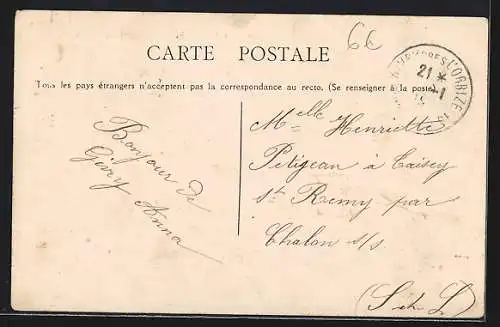 6c
CARTE POSTALE
Tous les pays étrangers n'acceptent pas la correspondance au recto. (Se renseigner à la poste)
L'ORBIZE
21 *
Bonjour de
Gevry Anna
Melle Henriette
Petigean à Taisey
St Remy par
Chalon s/s
(S et L)